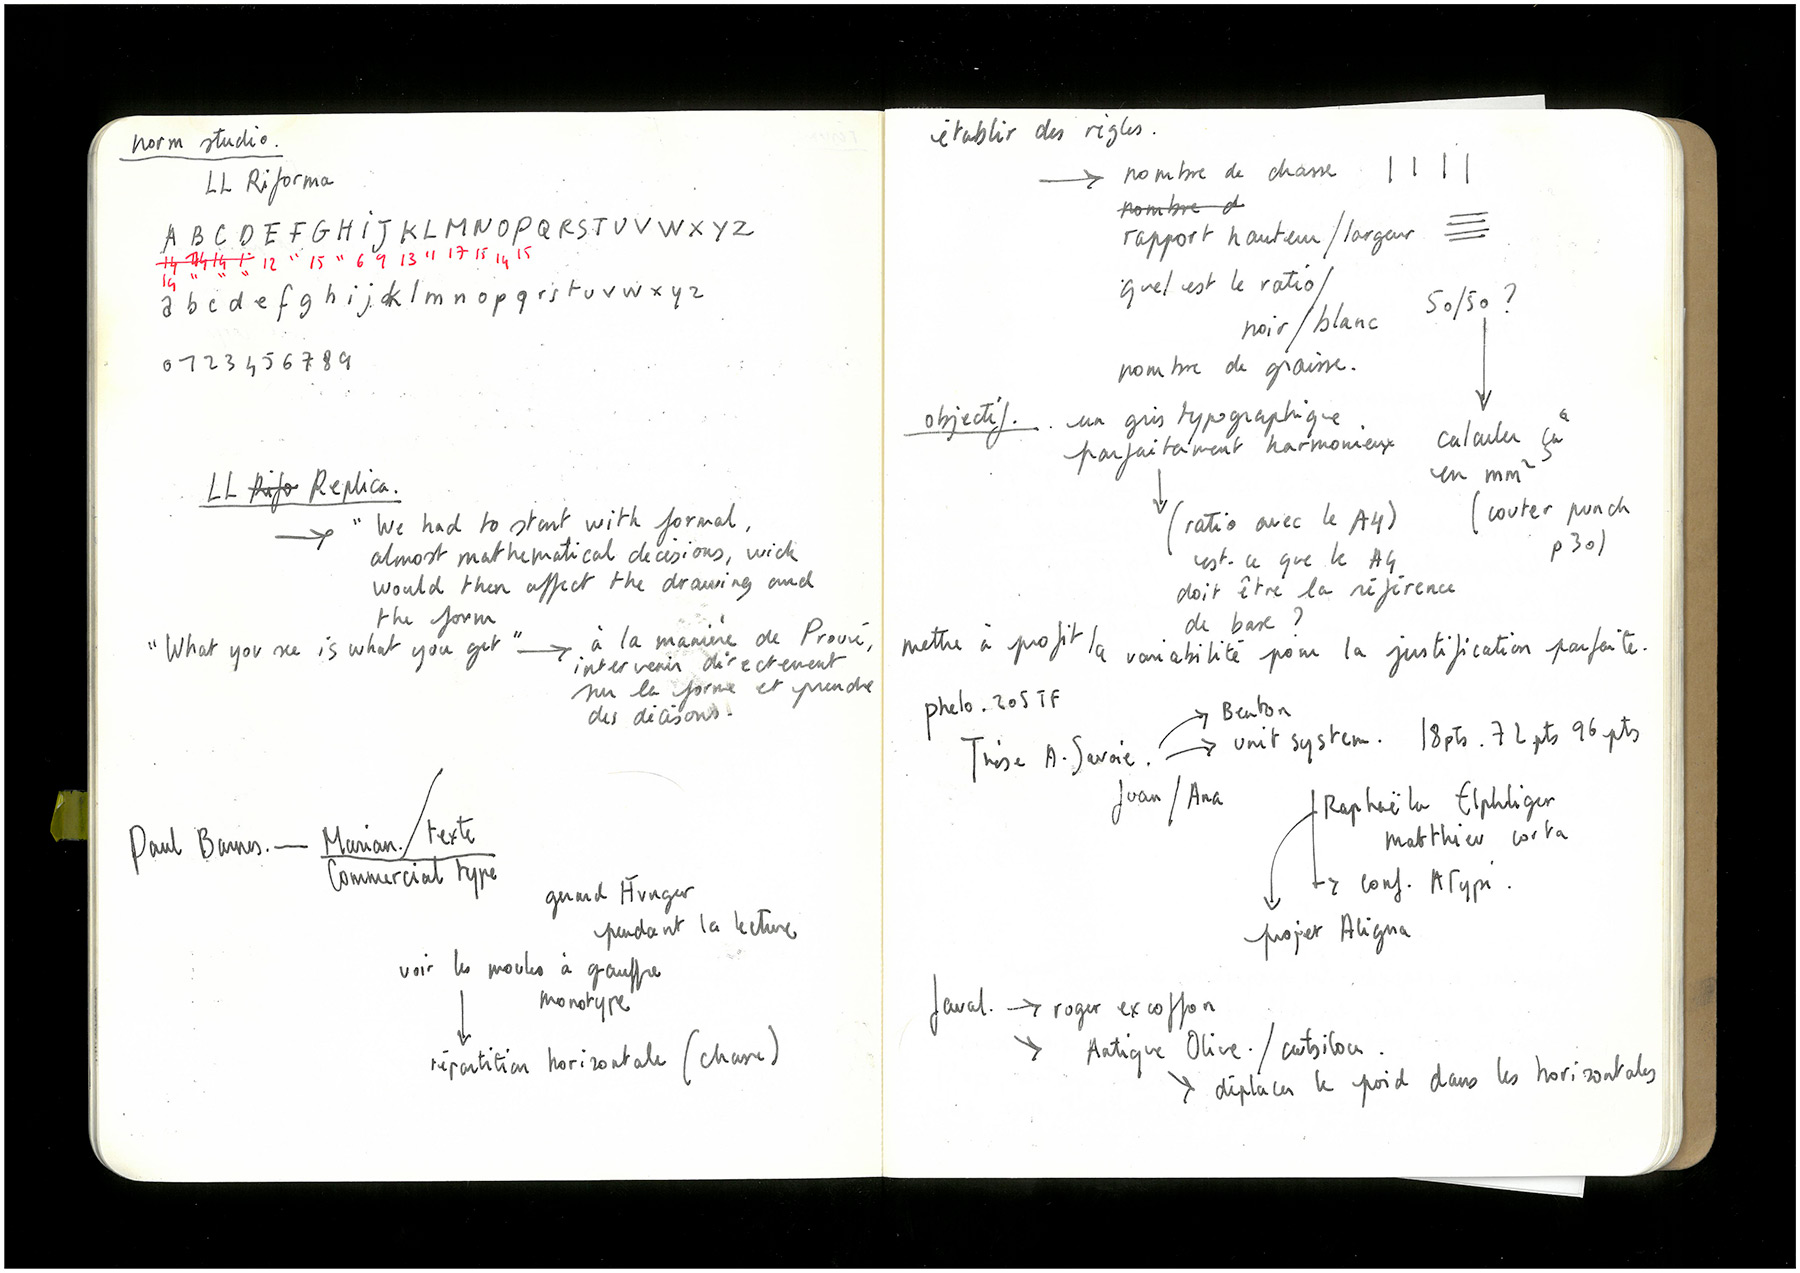 norm studio.
LL Riforma
A B C D E F G H i J K L M N O P Q R S T U V W X Y Z
14 14 14 12 " 15 " 6 9 13 " 17 15 14 15
14 " " "
a b c d e f g h i j k l m n o p q r s t u v w x y z
0 1 2 3 4 5 6 7 8 9
LL Rifo Replica.
→ "We had to start with formal,
almost mathematical decisions, wich
would then affect the drawing and
the form
"What you see is what you get" → à la manière de Prouvé,
intervenir directement
sur la forme et prendre
des décisions.
Paul Barnes. — Marian. / texte
Commercial type
gerard Unger
pendant la lecture
voir les moules à gauffre
monotype
répartition horizontale (chasse)
établir des règles.
→ nombre de chasse
nombre d
rapport hauteur/largeur
quel est le ratio/
noir/blanc 50/50 ?
nombre de graisse.
objectif. un gris typographique
parfaitement harmonieux
calculer ça
en mm²
(couter punch
p30)
(ratio avec le A4)
est-ce que le A4
doit être la référence
de base ?
mettre à profit la variabilité pour la justification parfaite.
phelo. 205TF
Thèse A. Savoie. → Benton
→ unit system. 18pts. 72pts 96pts
Juan / Ana
Raphaëla
matthieu corta
→ conf. ATypi.
projet Aligna
Javal. → roger excoffon
Antique Olive. /
déplacer le poid dans les horizontales